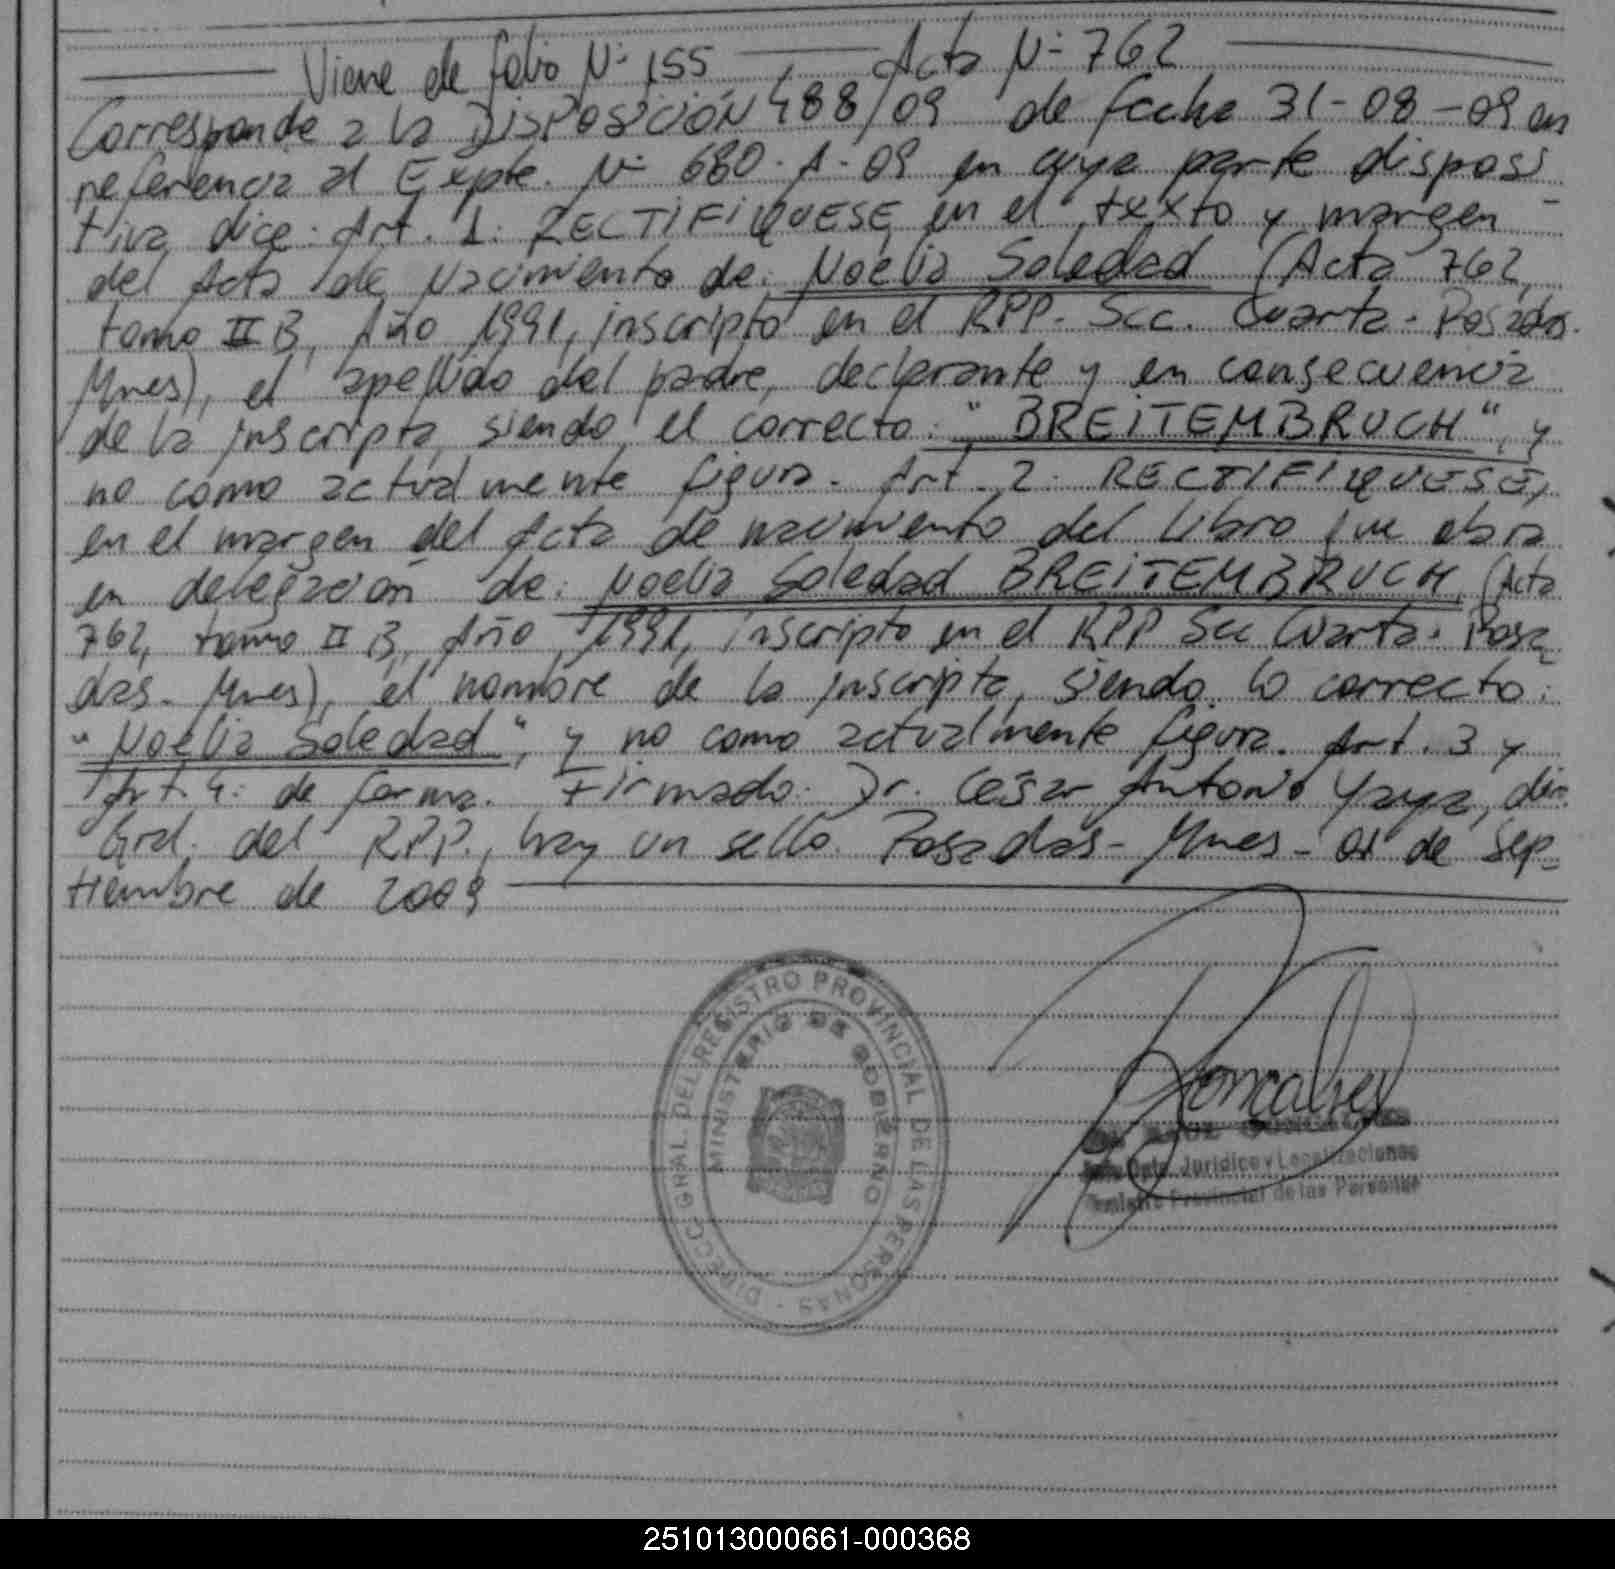 Viene de folio Nº 155 Acta Nº 762
Corresponde a la DISPOSICIÓN 488/09 de fecha 31-08-09 en
referencia al Expte. Nº 680-A-09 en cuya parte disposi
tiva dice: Art. 1: RECTIFIQUESE, en el texto y margen
del Acta de Nacimiento de: Noelia Soledad (Acta 762,
tomo II B, Año 1991, inscripto en el RPP- Scc. Cuarta- Posadas-
Mnes), el apellido del padre, declarante y en consecuencia
de la inscripta, siendo el correcto: "BREITEMBRUCH", y
no como actualmente figura. Art. 2: RECTIFIQUESE,
en el margen del Acta de nacimiento del Libro que obra
en delegación de: Noelia Soledad BREITEMBRUCH, (Acta
762, tomo II B, Año 1991, inscripto en el RPP Scc Cuarta- Posa
das- Mnes), el nombre de la inscripta, siendo lo correcto:
"Noelia Soledad", y no como actualmente figura. Art. 3 y
Art. 4: de forma. Firmado: Dr. César Antonio Yaya, dir.
Gral. del RPP., hay un sello. Posadas- Mnes- 01 de Sep-
tiembre de 2009
DIRECC. GRAL. DEL REGISTRO PROVINCIAL DE LAS PERSONAS
MINISTERIO DE GOBIERNO
Jefe Dpto. Jurídico y Legalizaciones
Registro Provincial de las Personas
251013000661-000368